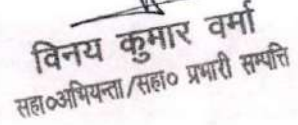 विनय कुमार वर्मा
सहा०अभियन्ता/सहा० प्रभारी सम्पत्ति